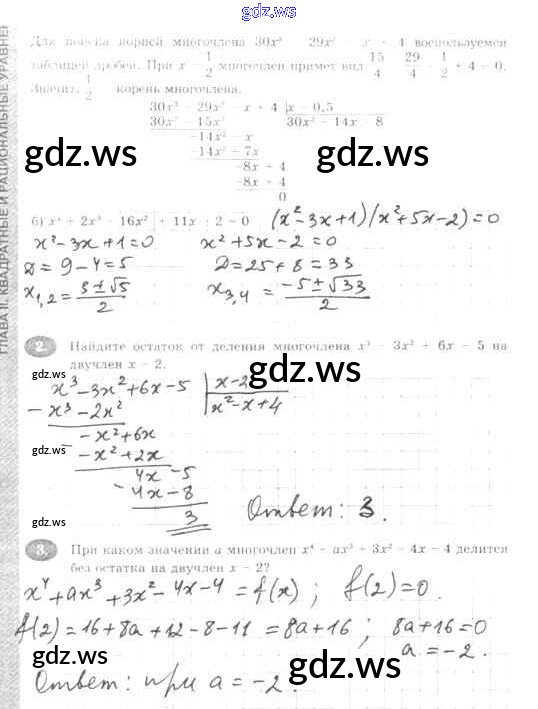 gdz.ws
ГЛАВА II. КВАДРАТНЫЕ И РАЦИОНАЛЬНЫЕ УРАВНЕ
Для поиска корней многочлена 30x³ − 29x² − x + 4 воспользуемся
таблицей дробей. При x = 1/2 многочлен примет вид 15/4 − 29/4 − 1/2 + 4 = 0.
Значит, 1/2 — корень многочлена.
30x³ − 29x² − x + 4 | x − 0,5
30x³ − 15x² 30x² − 14x − 8
−14x² − x
−14x² + 7x
gdz.ws gdz.ws
−8x + 4
−8x + 4
0
б) x⁴ + 2x³ − 16x² + 11x − 2 = 0 (x²−3x+1)(x²+5x−2)=0
x²−3x+1=0 x²+5x−2=0
D = 9−4=5 D=25+8=33
gdz.ws gdz.ws
x₁,₂ = (3±√5)/2 x₃,₄ = (−5±√33)/2
2. Найдите остаток от деления многочлена x³ − 3x² + 6x − 5 на
двучлен x − 2.
gdz.ws gdz.ws
x³−3x²+6x−5 | x−2
− x³−2x² x²−x+4
−x²+6x
gdz.ws
− −x²+2x
4x−5
− 4x−8
3 Ответ: 3.
gdz.ws gdz.ws
3. При каком значении a многочлен x⁴ + ax³ + 3x² − 4x − 4 делится
без остатка на двучлен x − 2?
x⁴+ax³+3x²−4x−4=f(x); f(2)=0.
f(2)=16+8a+12−8−11=8a+16; 8a+16=0
a=−2.
gdz.ws gdz.ws
Ответ: при a=−2.
gdz.ws